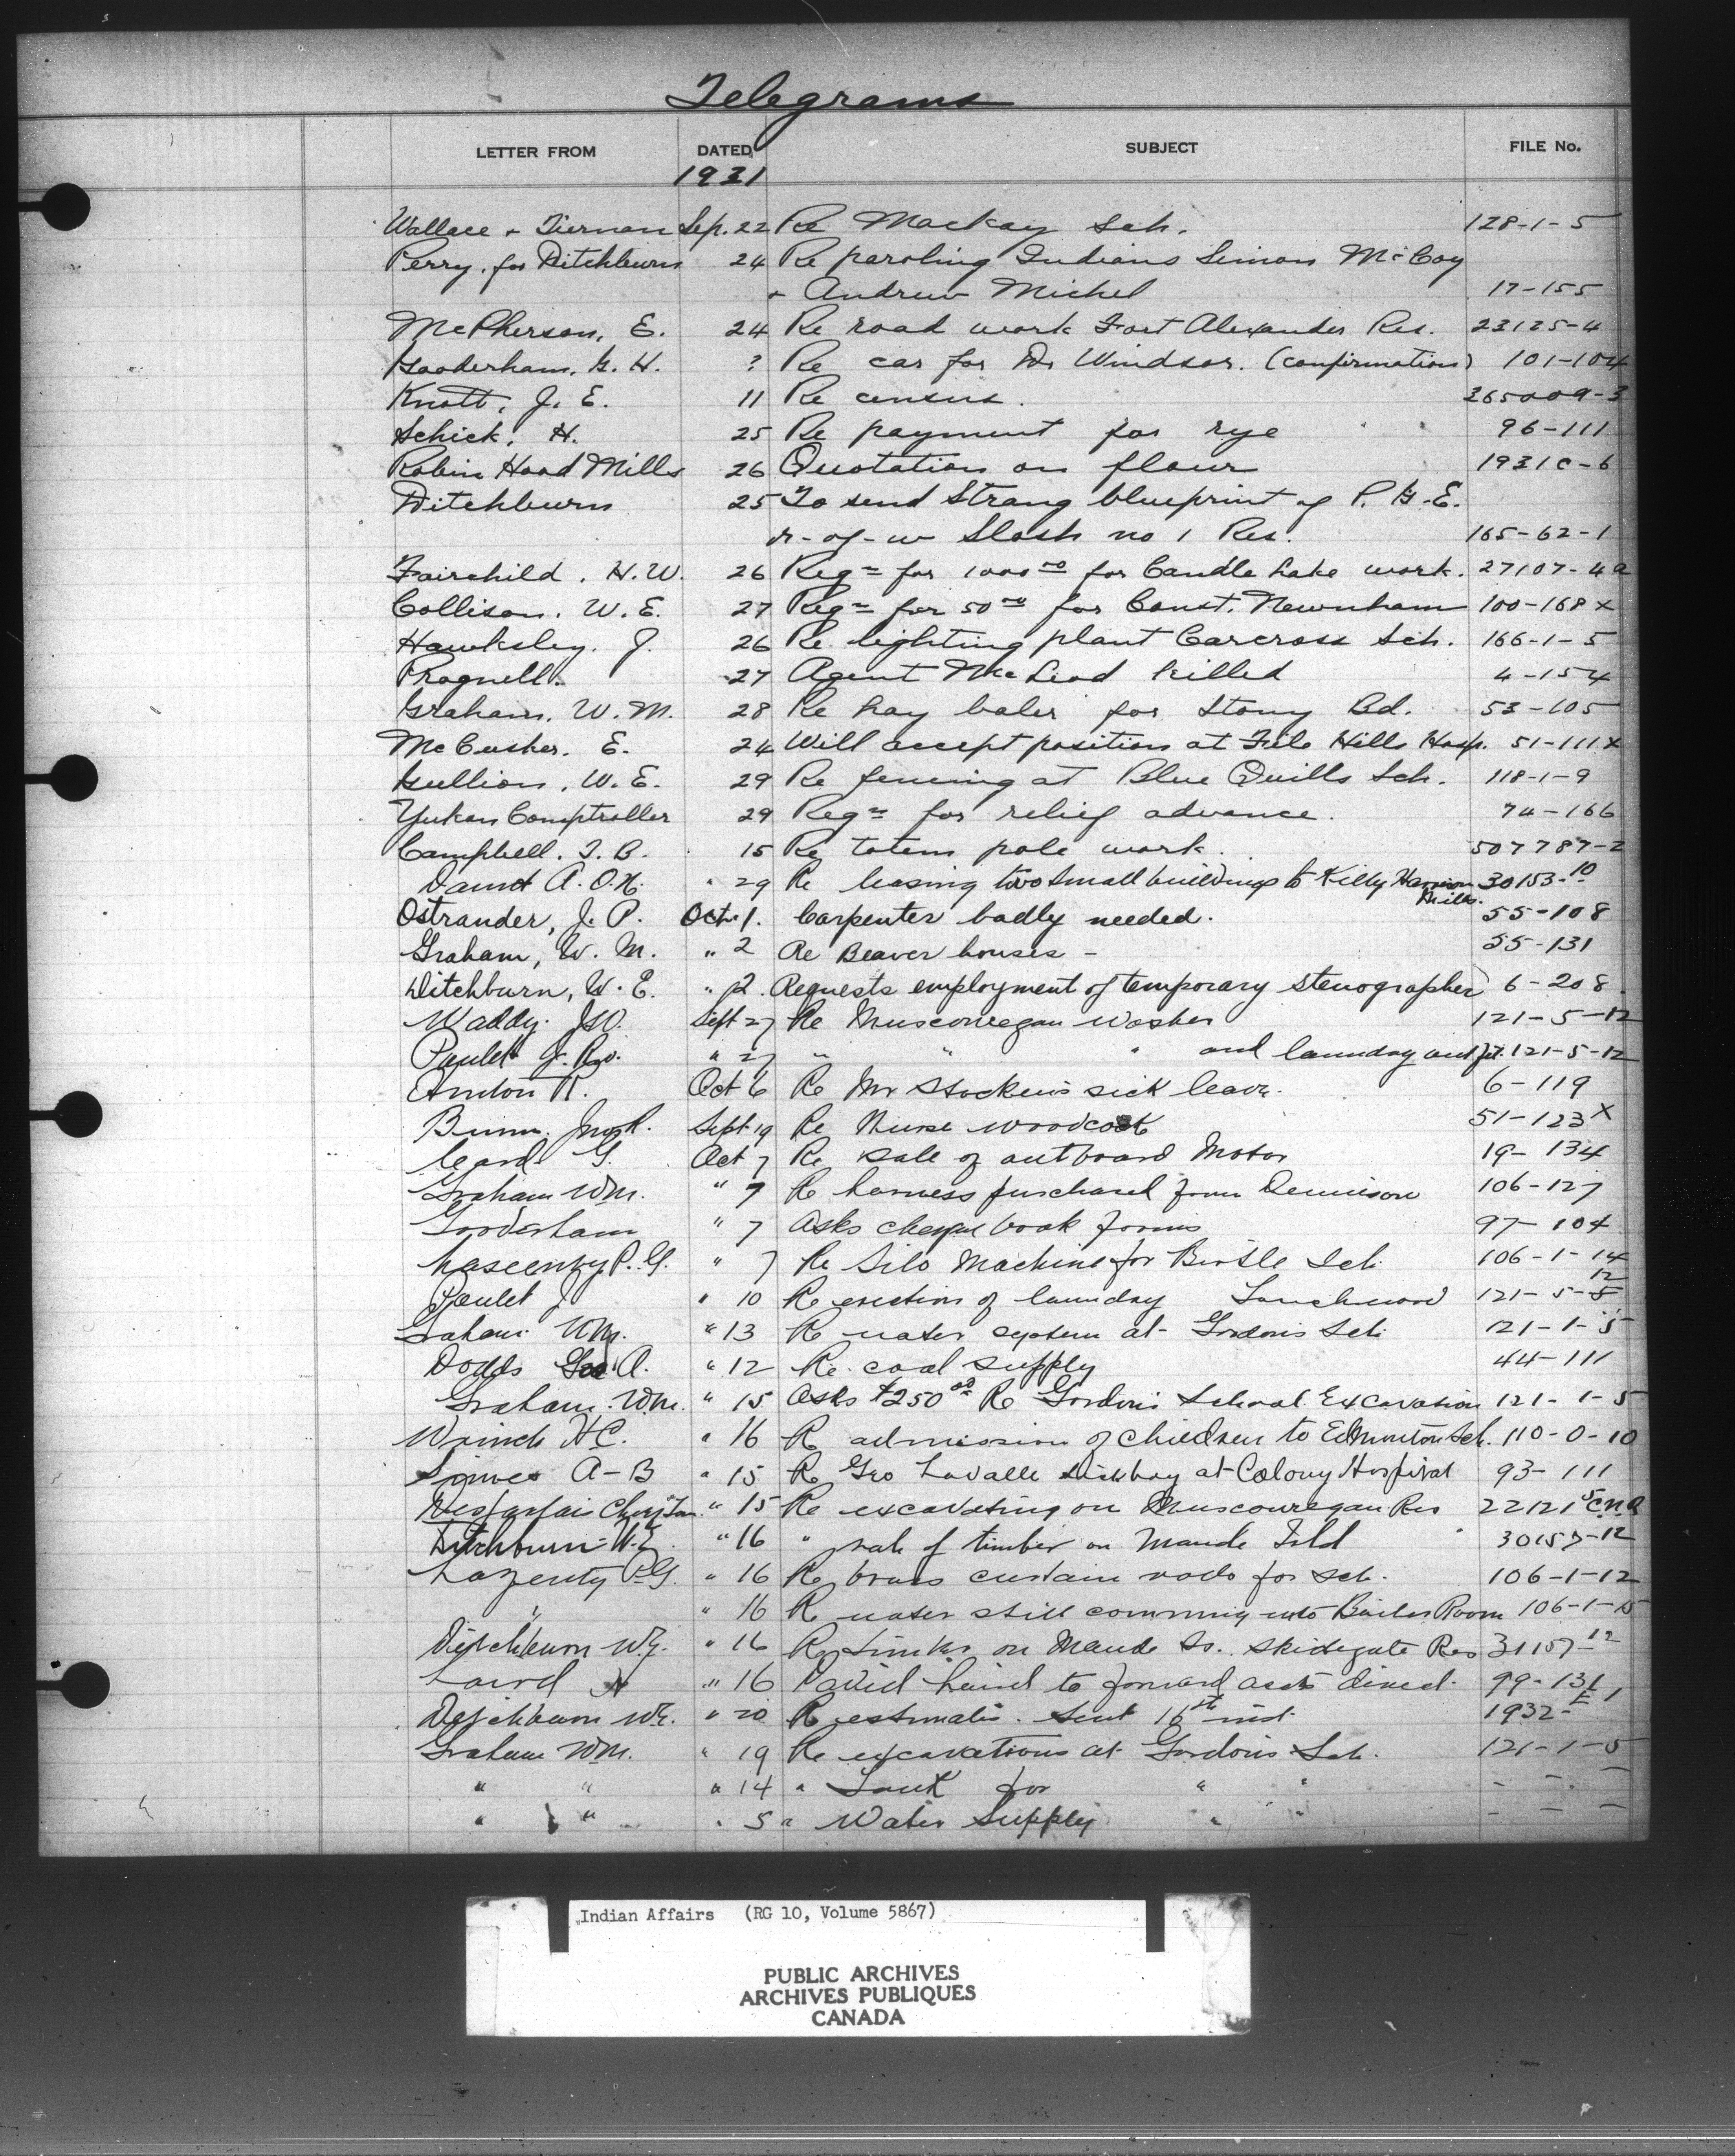 Telegrams
LETTER FROM DATED SUBJECT FILE No.
1931
Wallace + Tiernan Sep. 22 Re Mackay Sch. 128-1-5
Perry, for Ditchburn 24 Re paroling Indians Simon McCoy
+ Andrew Michel 17-155
McPherson, E. 24 Re road work Fort Alexander Res. 23125-4
Gooderham, G. H. ? Re car for Dr Windsor. (confirmation) 101-104
Knott, J. E. 11 Re census. 365009-3
Schick, H. 25 Re payment for rye 96-111
Robin Hood Mills 26 Quotation on flour 1931C-6
Ditchburn 25 To send Strang blueprint of P. G. E.
r-of-w Slosh no 1 Res. 165-62-1
Fairchild, H. W. 26 Reqn for 1000.00 for Candle Lake work. 27107-4a
Collison, W. E. 27 Reqn for 50.00 for Const. Newnham 100-168x
Hawksley, J. 26 Re lighting plant Carcross Sch. 166-1-5
Pragnell. 27 Agent McLeod killed 4-154
Graham, W. M. 28 Re hay baler for Stony Bd. 53-105
McCusker, E. 24 Will accept position at File Hills Hosp. 51-111x
Gullion, W. E. 29 Re fencing at Blue Quills Sch. 118-1-9
Yukon Comptroller 29 Reqn for relief advance. 74-166
Campbell, T. B. 15 Re totem pole work. 507787-2
Daunt A. O'N. " 29 Re leasing two small buildings to Killy Harrison 30153-10
Mills.
Ostrander, J. P. Oct. 1. Carpenter badly needed. 55-108
Graham, W. M. " 2 Re Beaver houses - 55-131
Ditchburn, W. E. " 2. Requests employment of temporary stenographer 6-208
Waddy. JW. Sept 27 Re Muscowegan washer 121-5-12
Poulet J. Rev. " 27 " " " and laundry outfit. 121-5-12
R. Oct 6 Re Mr Stocken's sick leave. 6-119
Bunn. Jno R. Sept 19 Re Nurse Woodcock 51-123x
Card G. Oct 7 Re Sale of outboard Motor 19-134
Graham WM. " 7 Re harness purchased from Dennison 106-127
Gooderham " 7 Asks cheque book forms 97-104
P. G. " 7 Re Silo Machine for Birtle Sch. 106-1-14
Poulet J " 10 Re erection of laundry Touchwood 121-5-12
Graham WM. " 13 Re water system at Gordons Sch. 121-1-5
Dodds Geo A. " 12 Re coal supply 44-111
Graham. WM. " 15 Asks $250.00 Re Gordons School Excavation 121-1-5
Wrinch HC. " 16 Re admission of children to Edmonton Sch. 110-0-10
A-B " 15 Re Geo Lavalle sick boy at Colony Hospital 93-111
" 15 Re excavating on Muscowegan Res 22121-5
Ditchburn W.E. " 16 " sale of timber on Maude Isld 30157-12
Lazenby P.G. " 16 Re brass curtain rods for sch. 106-1-12
" " 16 Re water still comming into Boiler Room 106-1-15
Ditchburn WE. " 16 Re timber on Maude Is. Skidegate Res 31157-12
Laird N " 16 David Laird to forward accts direct. 99-131
Ditchburn WE. " 20 Re estimates. Sent 16th inst. 1932-E1
Graham WM. " 19 Re excavations at Gordons Sch. 121-1-5
" " " 14 " Tank for " " - - -
" " " 5 " Water Supply " " - - -
Indian Affairs (RG 10, Volume 5867)
PUBLIC ARCHIVES
ARCHIVES PUBLIQUES
CANADA